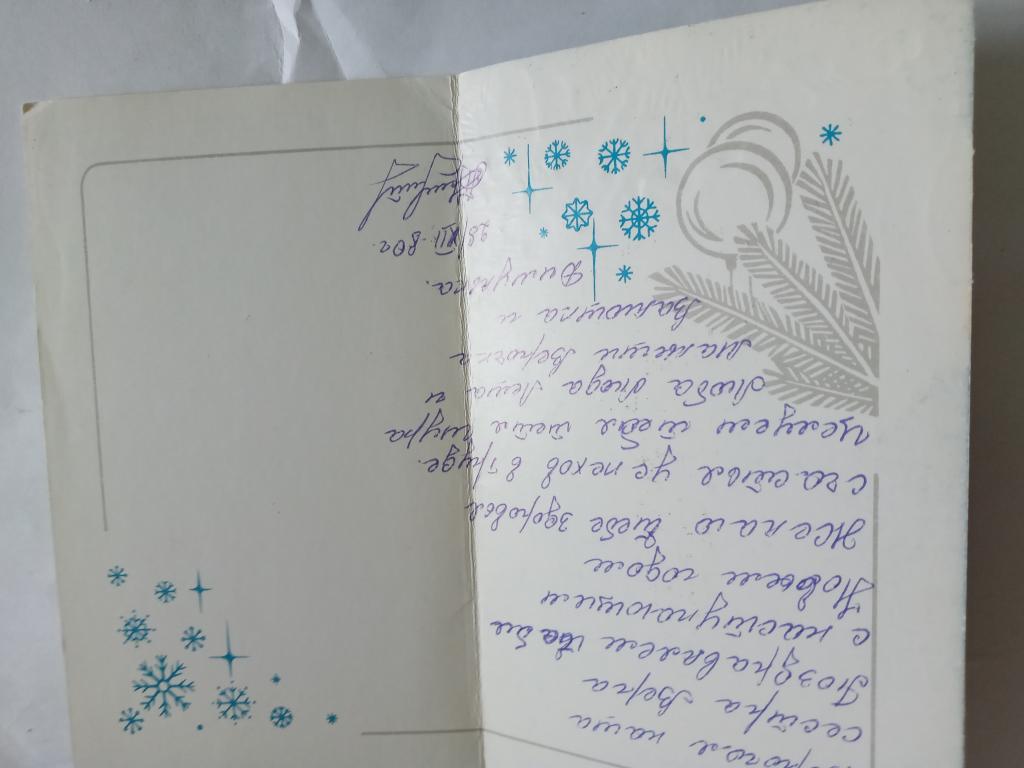 Дорогая наша
сестра Вера
Поздравляем тебя
с наступающим
Новым годом
Желаю тебе здоровья
счастья успехов в труде.
целуем тебя тетя Шура
Люба Люда Леша и
Верочка
Ванюша и
28/XII-80г.